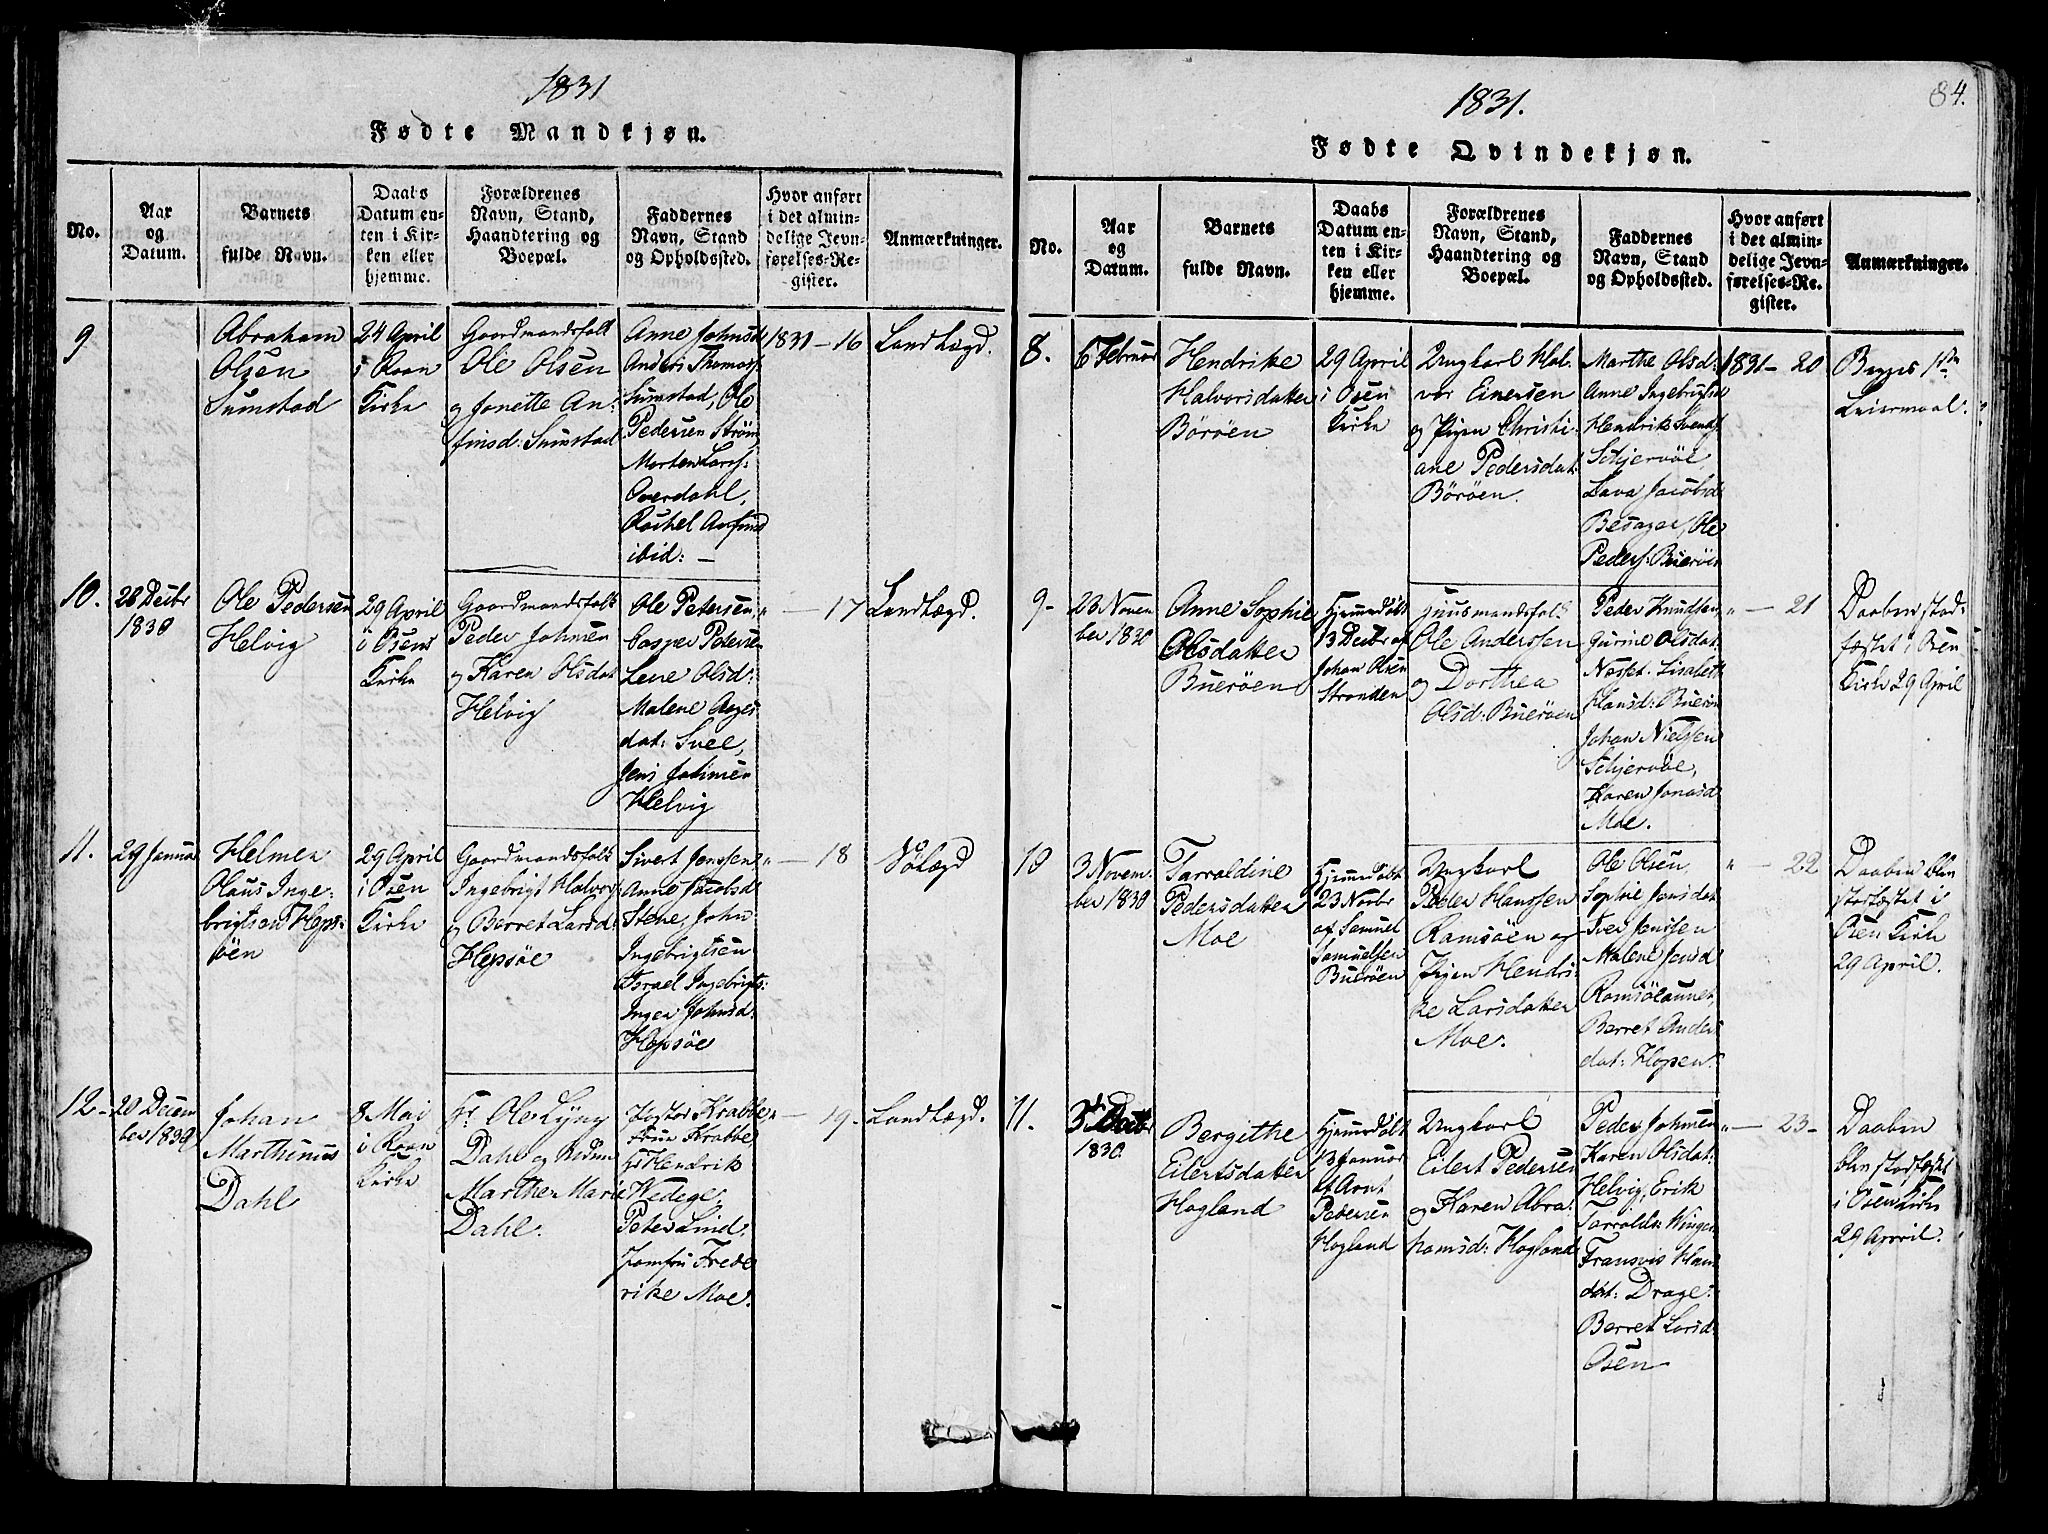 1831
Fødte Mandkjøn.
No.
Aar
og
Datum.
Barnets
fulde Navn.
Daabs
Datum en-
ten i Kir-
ken eller
hjemme.
Forældrenes
Navn, Stand,
Haandtering og
Boepæl.
Faddernes
Navn, Stand
og Opholdssted.
Hvor anført
i det almin-
delige Jevn-
førelses-Re-
gister.
Anmærkninger.
9
Abraham
Olsen
Sumstad
24 April
i Roan
Kirke
Gaardmandsfolk
Ole Olsen
og Jonette An-
finsd: Sumstad
Anne Johnsd
Anders Thomas:
Sumstad, Ole
Pedersen Strøm
Morten Lars:
Overdahl,
Rachel Anfind
ibid: —
1831 — 16
Landlægd.
10.
28 Decbr
1830
Ole Pedersen
Helvig
29 April
i Osens
Kirke
Gaardmandsfolk
Peder Johnsen
og Karen Olsdat
Helvig
Ole Petersen,
Casper Petersen
Lene Olsd:
Malene Aages
dat: Svee,
Jens Johnsen
Helvig
" — 17
Landlægd.
11.
29 Januar
Helmer
Olaus Inge-
brigtsen Heps-
öen
29 April
i Osen
Kirke
Gaardmandsfolk
Ingebrigt Halvors
og Berret Larsd:
Hepsöe
Sivert Jenssen
Anne Jacobsd
Stene, John
Ingebrigtsen
Israel Ingebrigts:
Inger Johnsd:
Hepsöe
" — 18
Sölægd
12 -
20 Decem
ber 1830
Johan
Marthinus
Dahl
8 Mai
i Roan
Kirke
Hr Ole Lyng
Dahl og
Marthe Marie
Dahl.
Pastor Krabbe
Frue Krabbe,
Hr Hendrik
Wedege,
Peter Lind
Jomfru Frede
rike Moe.
" — 19.
Landlægd.
1831.
84.
Fødte Qvindekjøn.
No.
Aar
og
Datum.
Barnets
fulde Navn.
Daabs
Datum en-
ten i Kir-
ken eller
hjemme.
Forældrenes
Navn, Stand,
Haandtering og
Boepæl.
Faddernes
Navn, Stand
og Opholdssted.
Hvor anført
i det almin-
delige Jevn-
førelses-Re-
gister.
Anmærkninger.
8.
6 Februar
Hendrike
Halvorsdatter
Böröen
29 April
i Osen
Kirke
Ungkarl Hal-
vor Einersen
og Pigen Christi-
ane Pedersdat:
Böröen.
Marthe Olsd:
Anne Ingebrigtsd
Hendrik Svends
Schjervöe,
Lava Jacobsd
Besager, Ole
Peders: Bueröen
1831 — 20
Begges 1ste
Leiermaal.
9 -
28 Novem
ber 1830
Anne Sophie
Olsdatter
Bueröen
Hjemmedöbt
13 Decbr af
Johan Olsen
Stranden
Huusmandsfolk
Ole Anderssen
og Dorthea
Olsd: Bueröen
Peder Knudsen
Gurine Olsdat
Næsset. Lisabeth
Hansd: Bueröen
Johan Nielssen
Schjervöe,
Karen Jonasd
Moe.
" — 21
Daaben stad-
fæstet i Osen
Kirke 29 April
10
3 Novem-
ber 1830
Tarraldine
Pedersdatter
Moe
Hjemmedöbt
23 Novbr
af Samuel
Samuelsen
Bueröen
Ungkarl
Peder Hanssen
Ramsöen og
Pigen Hendri-
ke Larsdatter
Moe.
Ole Olsen,
Sophie Jensdat:
Iver Jenssen
Malene Jensd
Ramsölaunet,
Berret Anders
dat: Hopen.
" — 22
Daaben blev
stadfæstet i
Osen Kirke
29 April.
11.
1830
Bergithe
Eilertsdatter
Hogland
Hjemmedöbt
13 Januar
af Arnt
Petersen
Hogland
Ungkarl
Eilert Pedersen
og Karen Abra-
hamsd: Hogland
Peder Johnsen
Karen Olsdat:
Helvig, Erik
Tarralds: Winge
Fransvis Hans
dat: Drage:
Berret Larsd:
Osen
" — 23 -
Daaben
blev stadfæstet
i Osen Kirke
29 April.